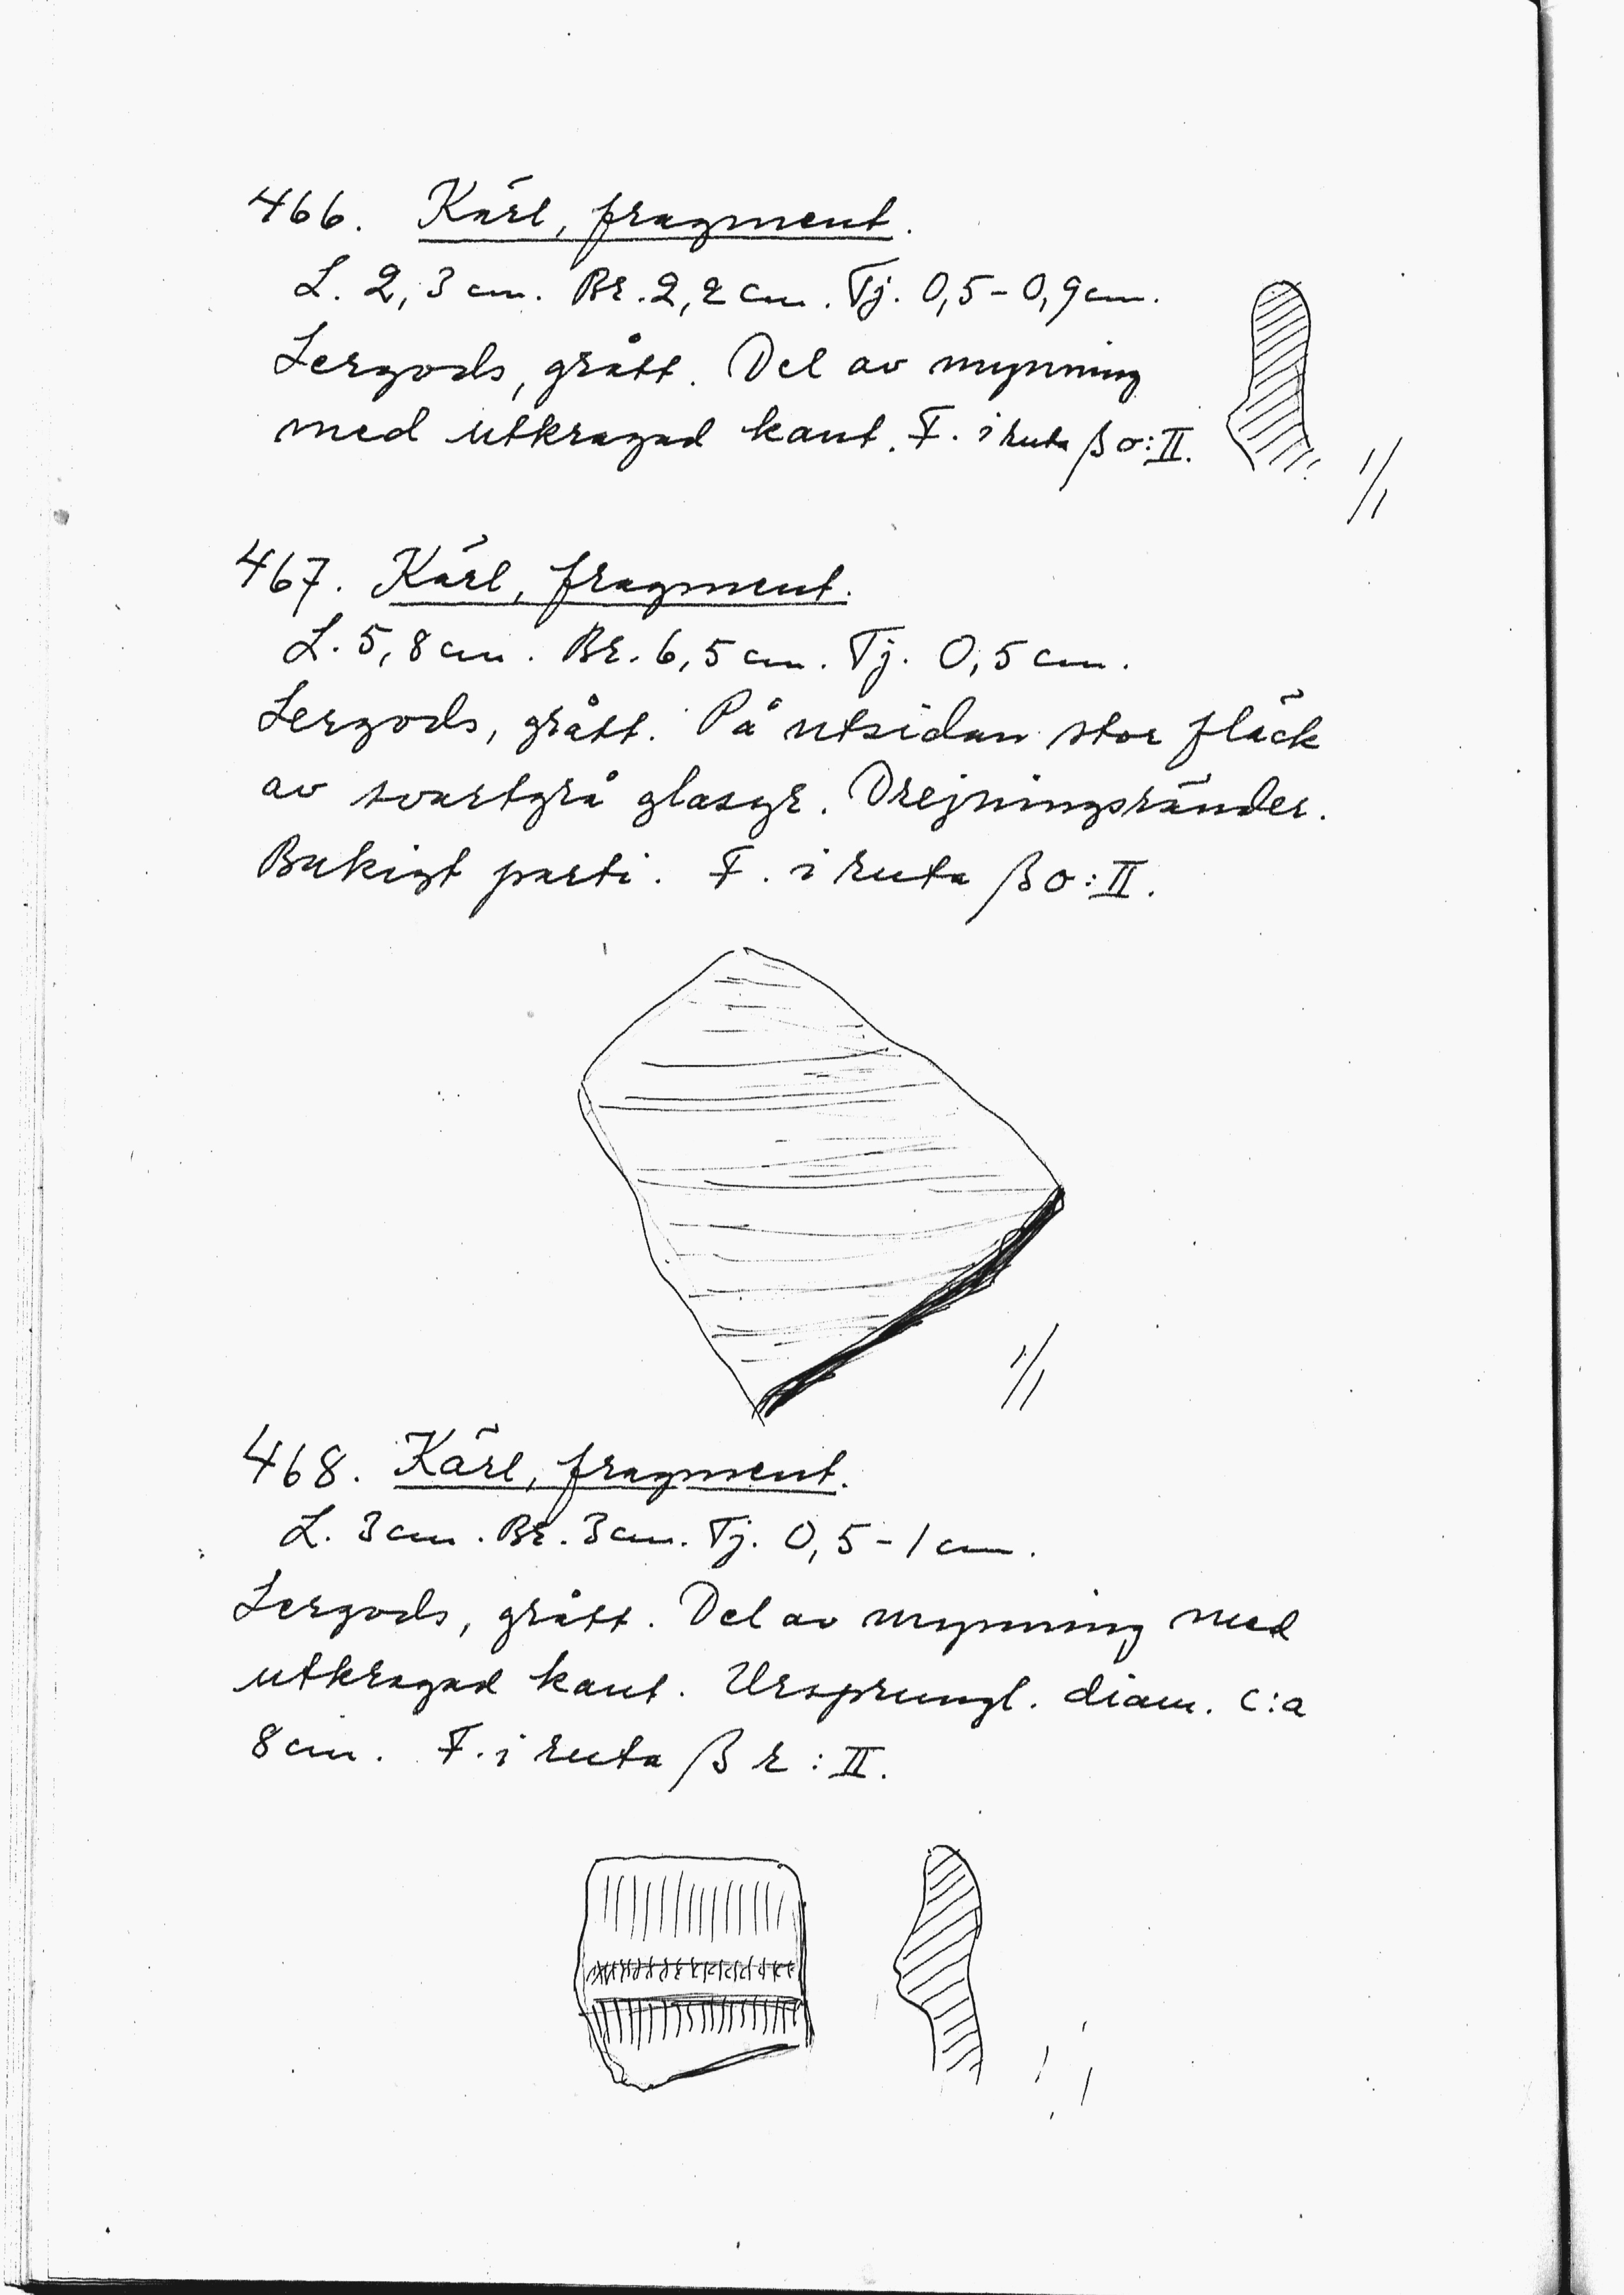 466. Kärl, fragment.
L. 2,3 cm. Br. 2,2 cm. Tj. 0,5-0,9 cm.
Lergods, grått. Del av mynning
med utkragad kant. F. i ruta βo:II.
1/1
467. Kärl, fragment.
L. 5,8 cm. Br. 6,5 cm. Tj. 0,5 cm.
Lergods, grått. På utsidan stor fläck
av svartgrå glasyr. Drejningsränder.
Bukigt parti. F. i ruta βo:II.
1/1
468. Kärl, fragment.
L. 3 cm. Br. 3 cm. Tj. 0,5-1 cm.
Lergods, grått. Del av mynning med
utkragad kant. Ursprungl. diam. c:a
8 cm. F. i ruta βr:II.